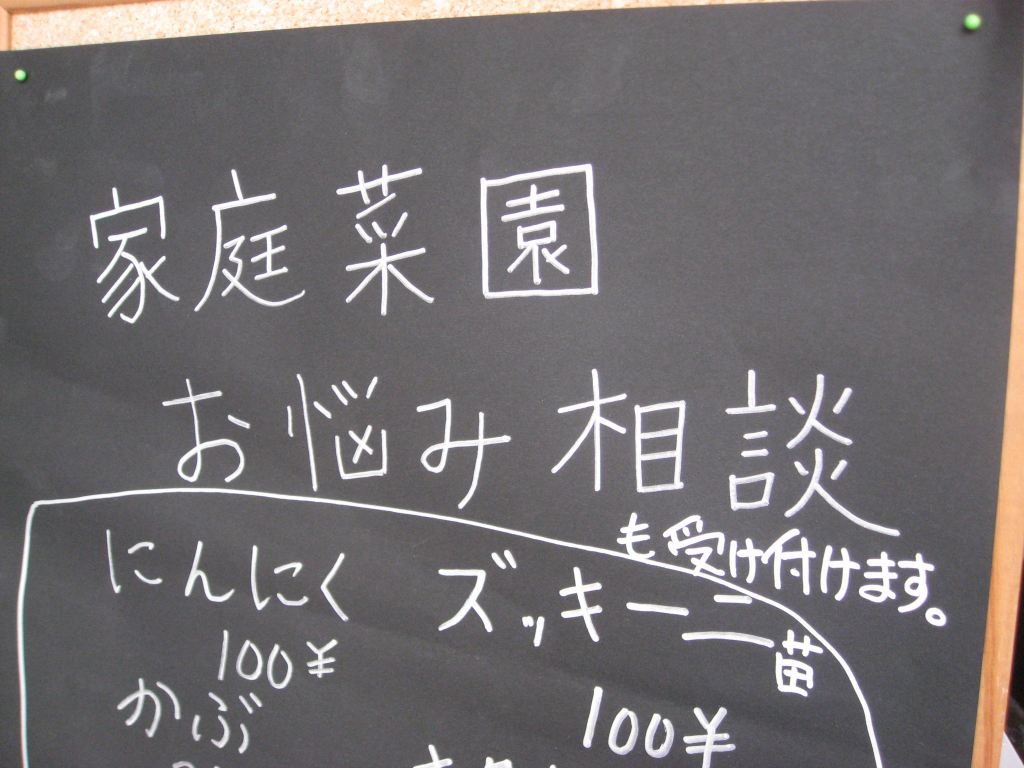 家庭菜園
お悩み相談
も受け付けます。
にんにく
100¥
ズッキーニ苗
100¥
かぶ